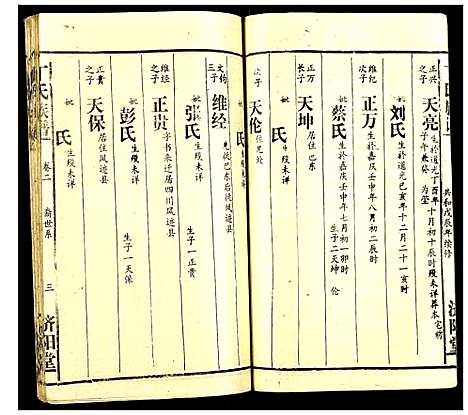 共和戊辰年续修
济阳堂
正兴之子 天亮 生於道光丁酉年十月初十辰时殁未详葬本宅旁
子年兼癸 为茔
妣 刘氏 生於道光己亥年十二月二十一寅时
维纪之子 正万 生於嘉庆壬申年八月初二辰时
妣 蔡氏 生於嘉庆壬申年七月初一卯时 生子二天坤 伦
正万长子 天坤 居住巴东
妣 氏 生殁未详
次子 天伦 住兄处
妣 氏 生殁未详
文钧三子 维经 先徙巴东后徙凤逊县
妣 张氏 生殁未详 生子一正贵
维经之子 正贵 字书来迁居四川凤逊县
妣 彭氏 生殁未详 生子一天保
正贵之子 天保 居住凤逊县
妣 氏 生殁未详
丁氏族谱
卷二
齿世系
三
济阳堂